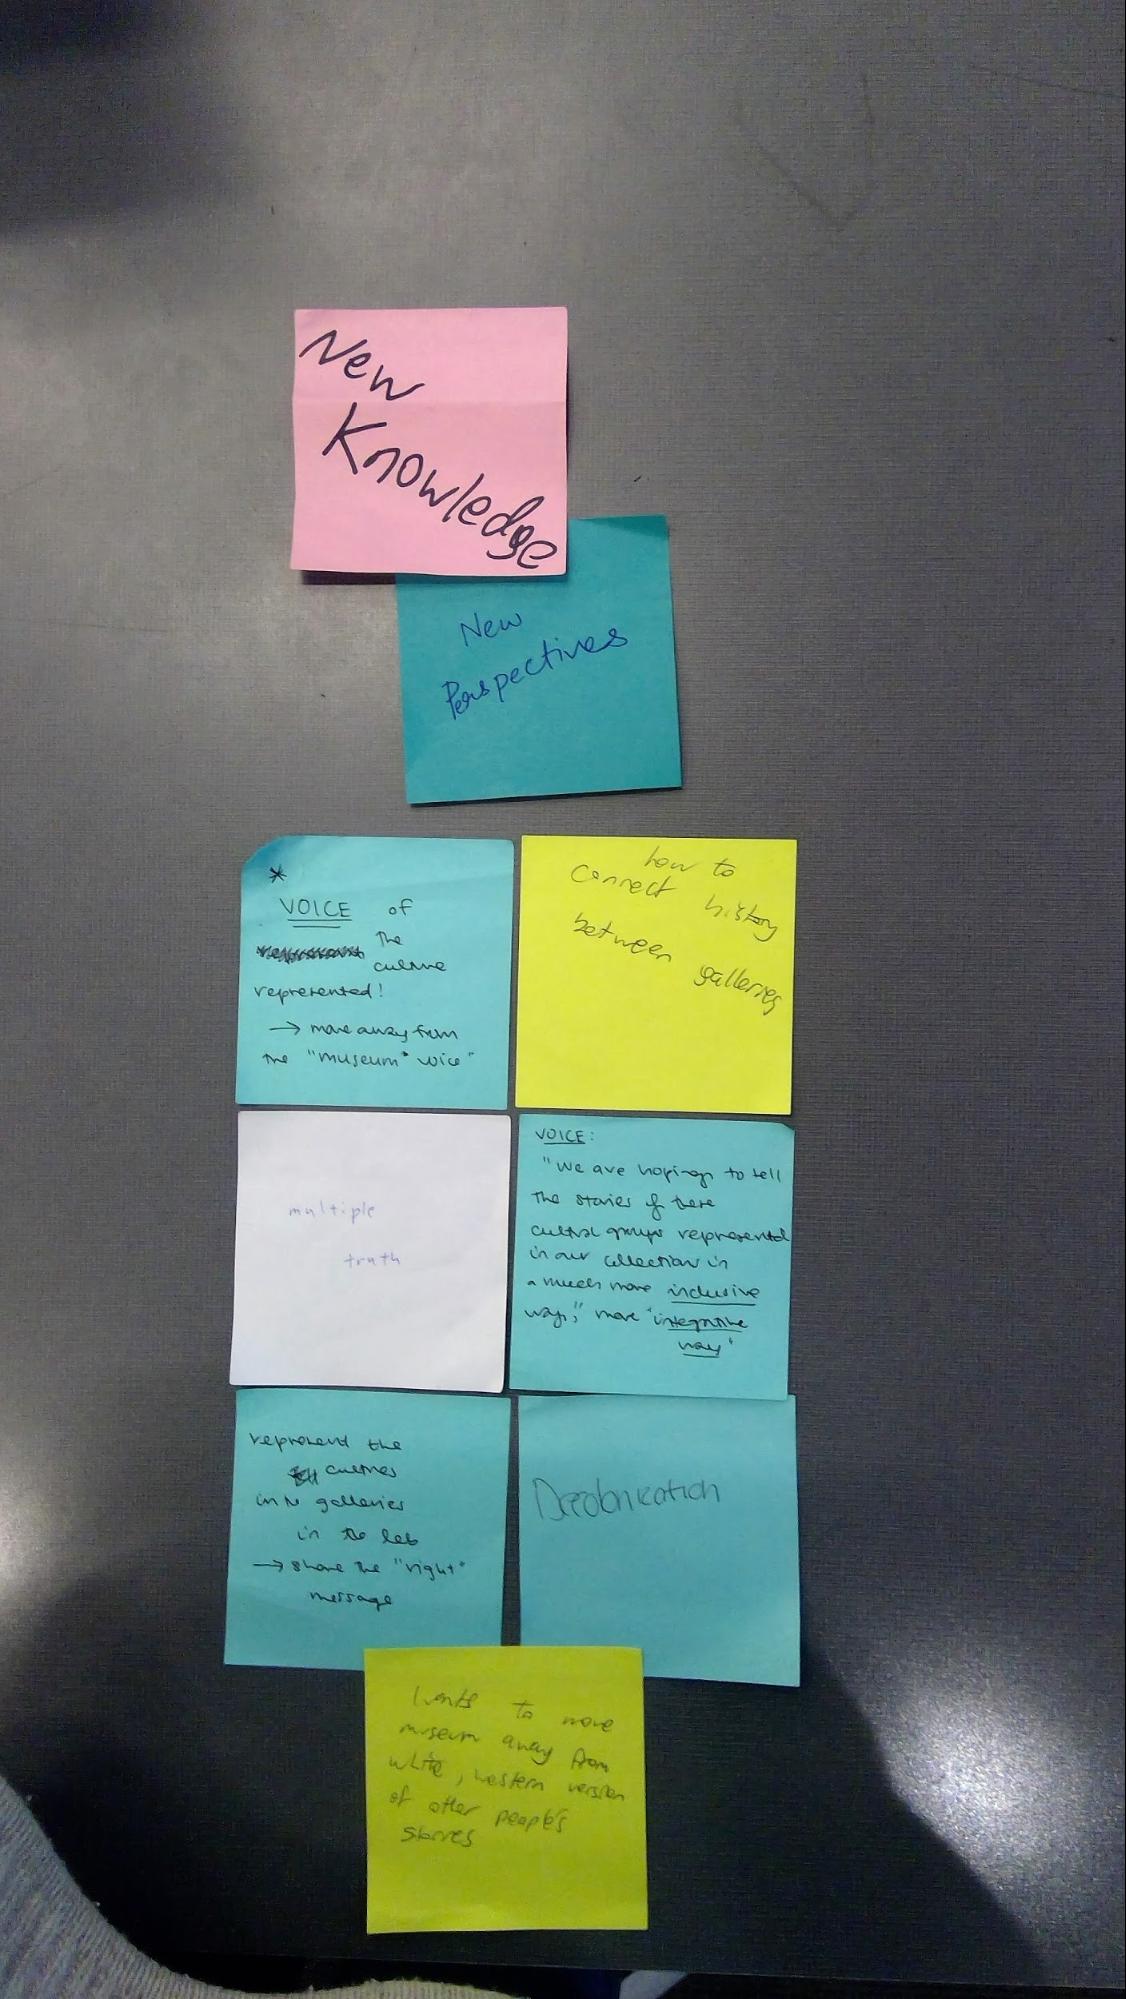 New
Knowledge
New
Perspectives
*
VOICE of
the
culture
represented!
→ move away from
the "museum" voice"
how to
connect history
between galleries
multiple
truth
VOICE:
"We are hoping to tell
the stories of these
cultural groups represented
in our collections in
a much more inclusive
way," more "integrative
way"
represent the
cultures
in galleries
in the lab
→ share the "right"
message
Decolonization
wants to move
museum away from
white, western version
of other people's
stories